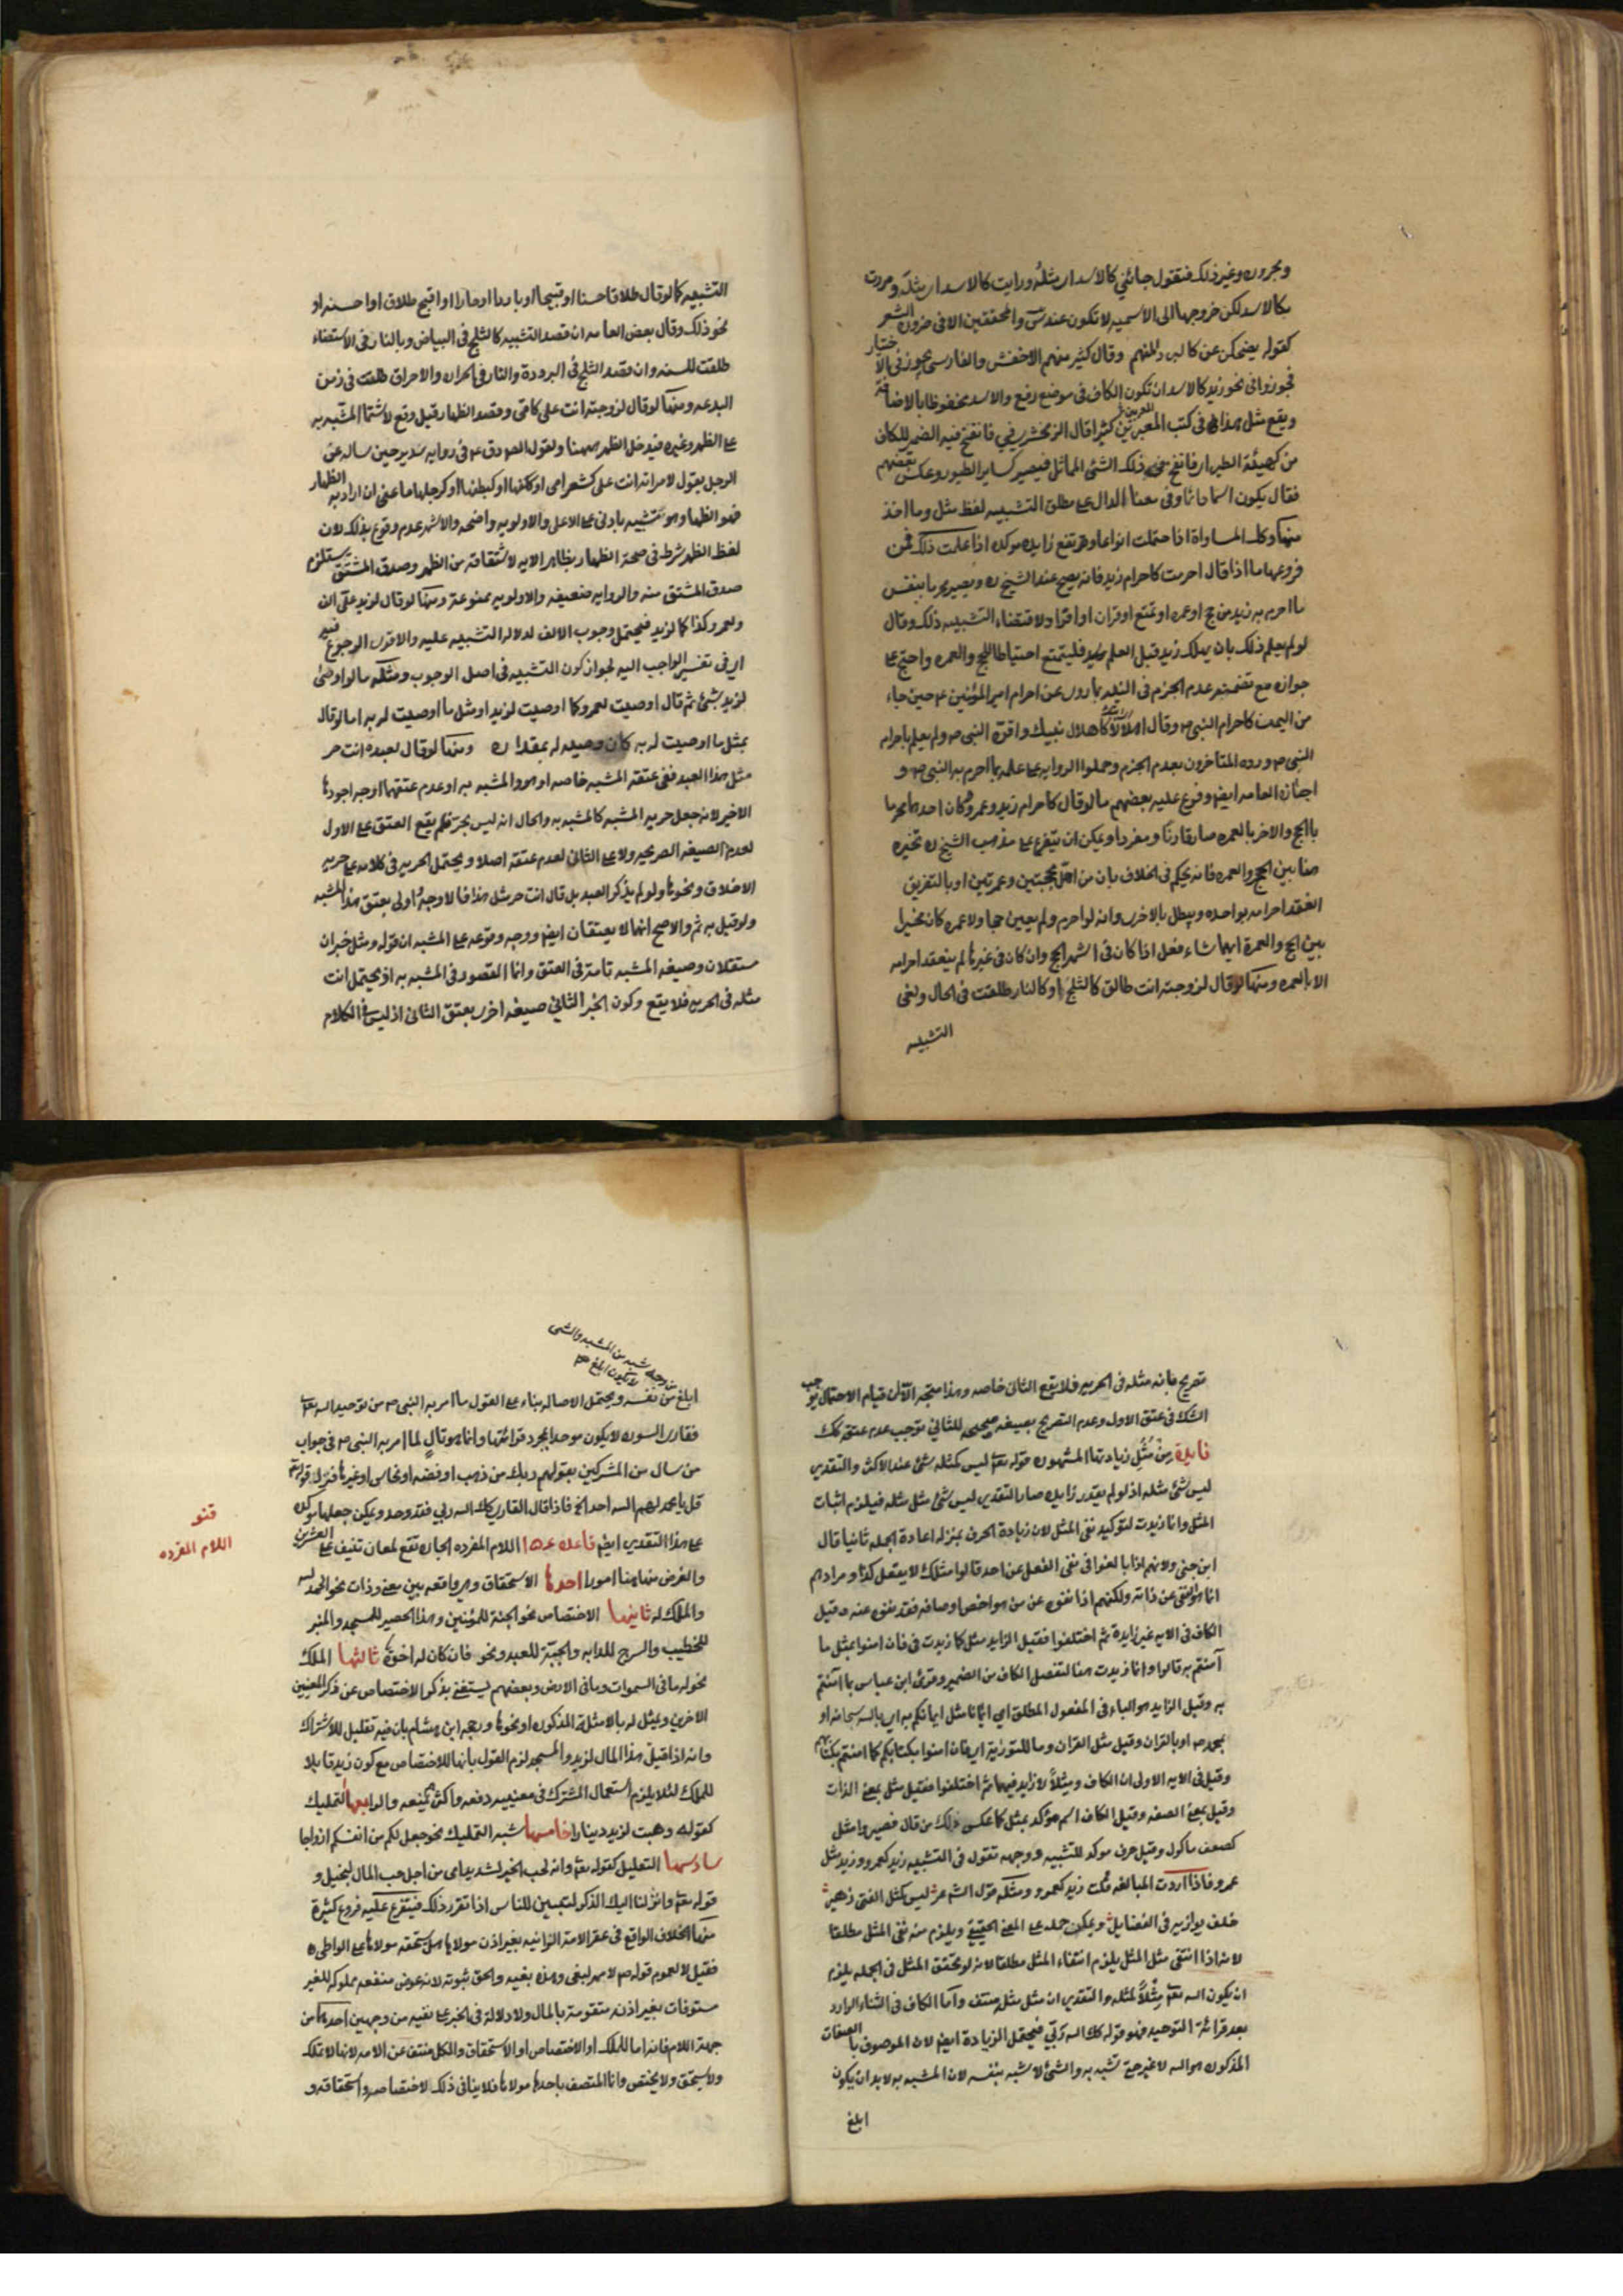 ومجرورة وغير ذلك فتقول جائني كالاسد اي مثله ورايت كالاسد اي مثله ومررت
بكالاسد لكن خروجها الى الاسمية لا تكون عند س والمحققين الا في ضرورة الشعر
كقوله يضحكن عن كالبرد المنهم وقال كثير منهم الاخفش والفارسي يجوز في الاختيار
فجوزوا في نحو زيد كالاسد ان تكون الكاف في موضع رفع والاسد مخفوظا بالاضافة
ويقع مثل هذا في كتب المعربين كثيرا قال الزمخشري في فانفخ فيه الضمير للكاف
من كهيئة الطير اي فانفخ في ذلك الشئ المماثل فيصير كساير الطيور وعكس بعضهم
فقال يكون اسما دائما وفي معنا الدال على مطلق التشبيه لفظ مثل وما اخذ
منها وكذا المساواة اذا حتملت انواعا وقد تقع زايده موكده اذا علمت ذلك فمن
فروعها ما اذا قال احرمت كاحرام زيد فانه يصح عند الشيخ ره ويصير محرما بنفس
ما احرم به زيد من حج او عمره او تمتع او قران او افرا د لاقتضاء التشبيه ذلك وقال
لو لم يعلم ذلك بان يهلك زيد قبل العلم فليتمتع احتياطا للحج والعمره واحتج على
جوازه مع تضمنه عدم الجزم في النيه بما روى عن احرام امير المؤمنين ع حين جاء
من اليمن كاحرام النبي ص وقال اهلالا كاهلال نبيك واقره النبي ص ولم يعلم باحرام
النبي ص ورده المتاخرون بعدم الجزم وحملوا الرواية على علمه بما احرم به النبي ص و
اجازه العامه ايضا وفرع عليه بعضهم ما لو قال كاحرام زيد وعمرو وكان احدهما محرما
بالحج والاخر بالعمره صار قارنا ومفردا ويمكن ان يتفرع على مذهب الشيخ ره تخيره
هنا بين الحج والعمره فانه يحكم في الخلاف بان من اهل بحجتين وعمرتين او بالتفريق
انعقد احرامه بواحده ويبطل بالاخرى وانه لو احرم ولم يعين حجا ولا عمره كان مخيرا
بين الحج والعمرة ايهما شاء فعل اذا كان في اشهر الحج وان كان في غيرها لم ينعقد احرامه
الا بالعمره ومنها لو قال لزوجته انت طالق كالثلج او كالنار طلقت في الحال ولغى
التشبيه
التشبيه كما لو قال طلاقا حسنا او قبيحا او باردا او حارا او اقبح طلاق او احسنه او
نحو ذلك وقال بعض العامه ان قصد التشبيه كالثلج في البياض وبالنار في الاستضاء
طلقت للسنه وان قصد الثلج في البرودة والنار في الحراره والاحراق طلقت في زمن
البدعه ومنها لو قال لزوجته انت على كامي وقصد الظهار قيل وقع لاشتمال المشبه به
على الظهر وغيره فيدخل الظهر ههنا ولقول الصادق ع في رواية سدير حين ساله عن
الرجل يقول لامراته انت على كشعر امي او ككفها او كبطنها او كرجلها ما عنى ان اراد به الظهار
فهو الظهار وهو تشبيه بادنى على الاعلى والاولويه واضحه والاشهر عدم وقوعه بذلك لان
لفظ الظهر شرط في صحة الظهار بظاهر الايه لاشتقاقه من الظهر وصدق المشتق يستلزم
صدق المشتق منه والروايه ضعيفه والاولويه ممنوعة ومنها لو قال لزيد على الف
ولعمرو كذا كما لزيد فيحتمل وجوب الالف لدلالة التشبيه عليه والاقوى الرجوع فيه
اي في تفسير الواجب اليه لجواز كون التشبيه في اصل الوجوب ومثله ما لو اوصى
لزيد بشئ ثم قال اوصيت لعمرو كما اوصيت لزيد او مثل ما اوصيت له به اما لو قال
بمثل ما اوصيت له به كان وصيه له بمقداره ومنها لو قال لعبده انت حر
مثل هذا العبد ففي عتقه المشبه خاصه او هو والمشبه به او عدم عتقهما اوجه اجودها
الاخير لانه جعل حرية المشبه كالمشبه به والحال انه ليس بحر فلم يقع العتق على الاول
لعدم الصيغه الصريحه ولا على الثاني لعدم عتقه اصلا ويحتمل الحريه في كلامه على حرية
الاخلاق ونحوها ولو لم يذكر العبد بل قال انت حر مثل هذا فالاوجه واولى بعتق هذا المشبه
ولو قيل به ثم والاصح انهما لا يعتقان ايضا ووجه وقوعه على المشبه ان قوله ومثل خبران
مستقلان وصيغه المشبه تامة في العتق وانما القصور في المشبه به اذ يحتمل انت
مثله في الحريه فلا يقع وكون الخبر الثاني صيغه اخرى بعتق الثاني اذ ليس في الكلام
تصريح بانه مثله في الحريه فلا يقع الثاني خاصه وهذا متجه الا ان قيام الاحتمال يوجب
الشك في عتق الاول وعدم التصريح بصيغه صحيحه للثاني توجب عدم عتقه كك
فايدة من مثل زيادتها المشهوره قوله تعالى ليس كمثله شئ عند الاكثر والتقدير
ليس شئ مثله اذ لو لم يقدر زايده صار التقدير ليس شئ مثل مثله فيلزم اثبات
المثل وانما زيدت لتوكيد نفى المثل لان زيادة الحرف بمنزلة اعادة الجمله ثانيا قال
ابن جني ولانهم اذا بالغوا في نفى الفعل عن احد قالوا مثلك لا يفعل كذا ومرادهم
انما هو النفي عن ذاته ولكنهم اذا نفوه عن من هو اخص اوصافه فقد نفوه عنه وقيل
الكاف في الايه غير زايدة ثم اختلفوا فقيل الزايد مثل كما زيدت في فان امنوا بمثل ما
آمنتم به قالوا وانما زيدت هنا لتفصل الكاف من الضمير وقرئ ابن عباس بما آمنتم
به وقيل الزايد هو الباء في المفعول المطلق اي ايمانا مثل ايمانكم به اي بالله سبحانه او
بمحمد ص او بالقران وقيل مثل القران وما للتورية اي فان امنوا بكتابكم كما امنتم بكتابهم
وقيل في الايه الاولى ان الكاف ومثلا لا زايد فيهما ثم اختلفوا فقيل مثل بمعنى الذات
وقيل بمعنى الصفه وقيل الكاف اسم مؤكد بمثل كما عكس ذلك من قال فصيروا مثل
كعصف ماكول وقيل حرف موكد للتشبيه ووجهه تقول في التشبيه زيد كعمرو وزيد مثل
عمرو فاذا اردت المبالغه قلت زيد كعمرو ومثله قول الشاعر ليس كمثل الفتى زهير
خلف يوازيه في الفضايل ويمكن حمله على المعنى الحقيقي ويلزم منه نفى المثل مطلقا
لانه اذا انتفى مثل المثل يلزم انتفاء المثل مطلقا لانه لو تحقق المثل في الجمله يلزم
ان يكون الله تعالى مثلا لمثله والتقدير ان مثل مثله منتف واما الكاف في الثناء الوارد
بعد قرائة التوحيد فهو قوله كك الله ربي فيحتمل الزيادة ايضا لان الموصوف بالصفات
المذكوره هو الله لا غير حتى تشبه به والشئ لا شبه بنفسه لان المشبه به لا بد ان يكون
ابلغ
من وجه شبه من المشبه والشئ
لا يكون ابلغ
ابلغ من نفسه ويحتمل الاصاله بناء على القول ما امر به النبي ص من توحيد الله تعالى
فقارى السوره لا يكون موحدا بمجرد قرائتها وانما هو تال لما امر به النبي ص في جواب
من سال من المشركين بقولهم ربك من ذهب او فضه او نحاس او غيرها فنزل قوله
قل يا محمد لهم الله احد الخ فاذا قال القارى كك الله ربي فقد وحد ويمكن جعلها موكده
على هذا التقدير ايضا قاعدة اللام المفرده الجاره تقع لمعان تنيف على العشرين
والغرض منها هنا امور احدها الاستحقاق وهي واقعه بين معنى وذات نحو الحمد لله
والملك له ثانيها الاختصاص نحو الجنة للمؤمنين وهذا الحصير للمسجد والمنبر
للخطيب والسرج للدابه والجبة للعبد ونحو فان كان له اخوة ثالثها الملك
نحو له ما في السموات وما في الارض وبعضهم يستغنى بذكر الاختصاص عن ذكر المعنيين
الاخرين ويمثل له بالامثلة المذكوره او نحوها ورجحه ابن هشام بان فيه تقليل للاشتراك
وانه اذا قيل هذا المال لزيد والمسجد لزم القول بانها للاختصاص مع كون زيد قابلا
للملك لئلا يلزم استعمال المشترك في معنييه دفعه واكثرهم يمنعه والرابعها التمليك
كقوله وهبت لزيد دينارا خامسها شبه التمليك نحو جعل لكم من انفسكم ازواجا
سادسها التعليل كقوله تعالى وانه لحب الخير لشديد اى من اجل حب المال لبخيل و
قوله تعالى وانزلنا اليك الذكر لتبين للناس اذا تقرر ذلك فيتفرع عليه فروع كثيرة
منها الخلاف الواقع في عقر الامة الزانيه بغير اذن مولاها هل يستحقه مولاها على الواطي
فقيل لا لعموم قوله ص لا مهر لبغى وهذه بغيه والحق ثبوته لانه عوض منفعه مملوكه للغير
مستوفات بغير اذنه متقومة بالمال ولا دلالة في الخبر على نفيه من وجهين احدهما من
جهة اللام فانها اما للملك او الاختصاص او الاستحقاق والكل منتف عن الامه لانها لا تملك
ولا يستحق ولا يختص وانما المتصف باحدها مولاها فلا ينافي ذلك لاختصاصه واستحقاقه و
قنو
اللام المفرده